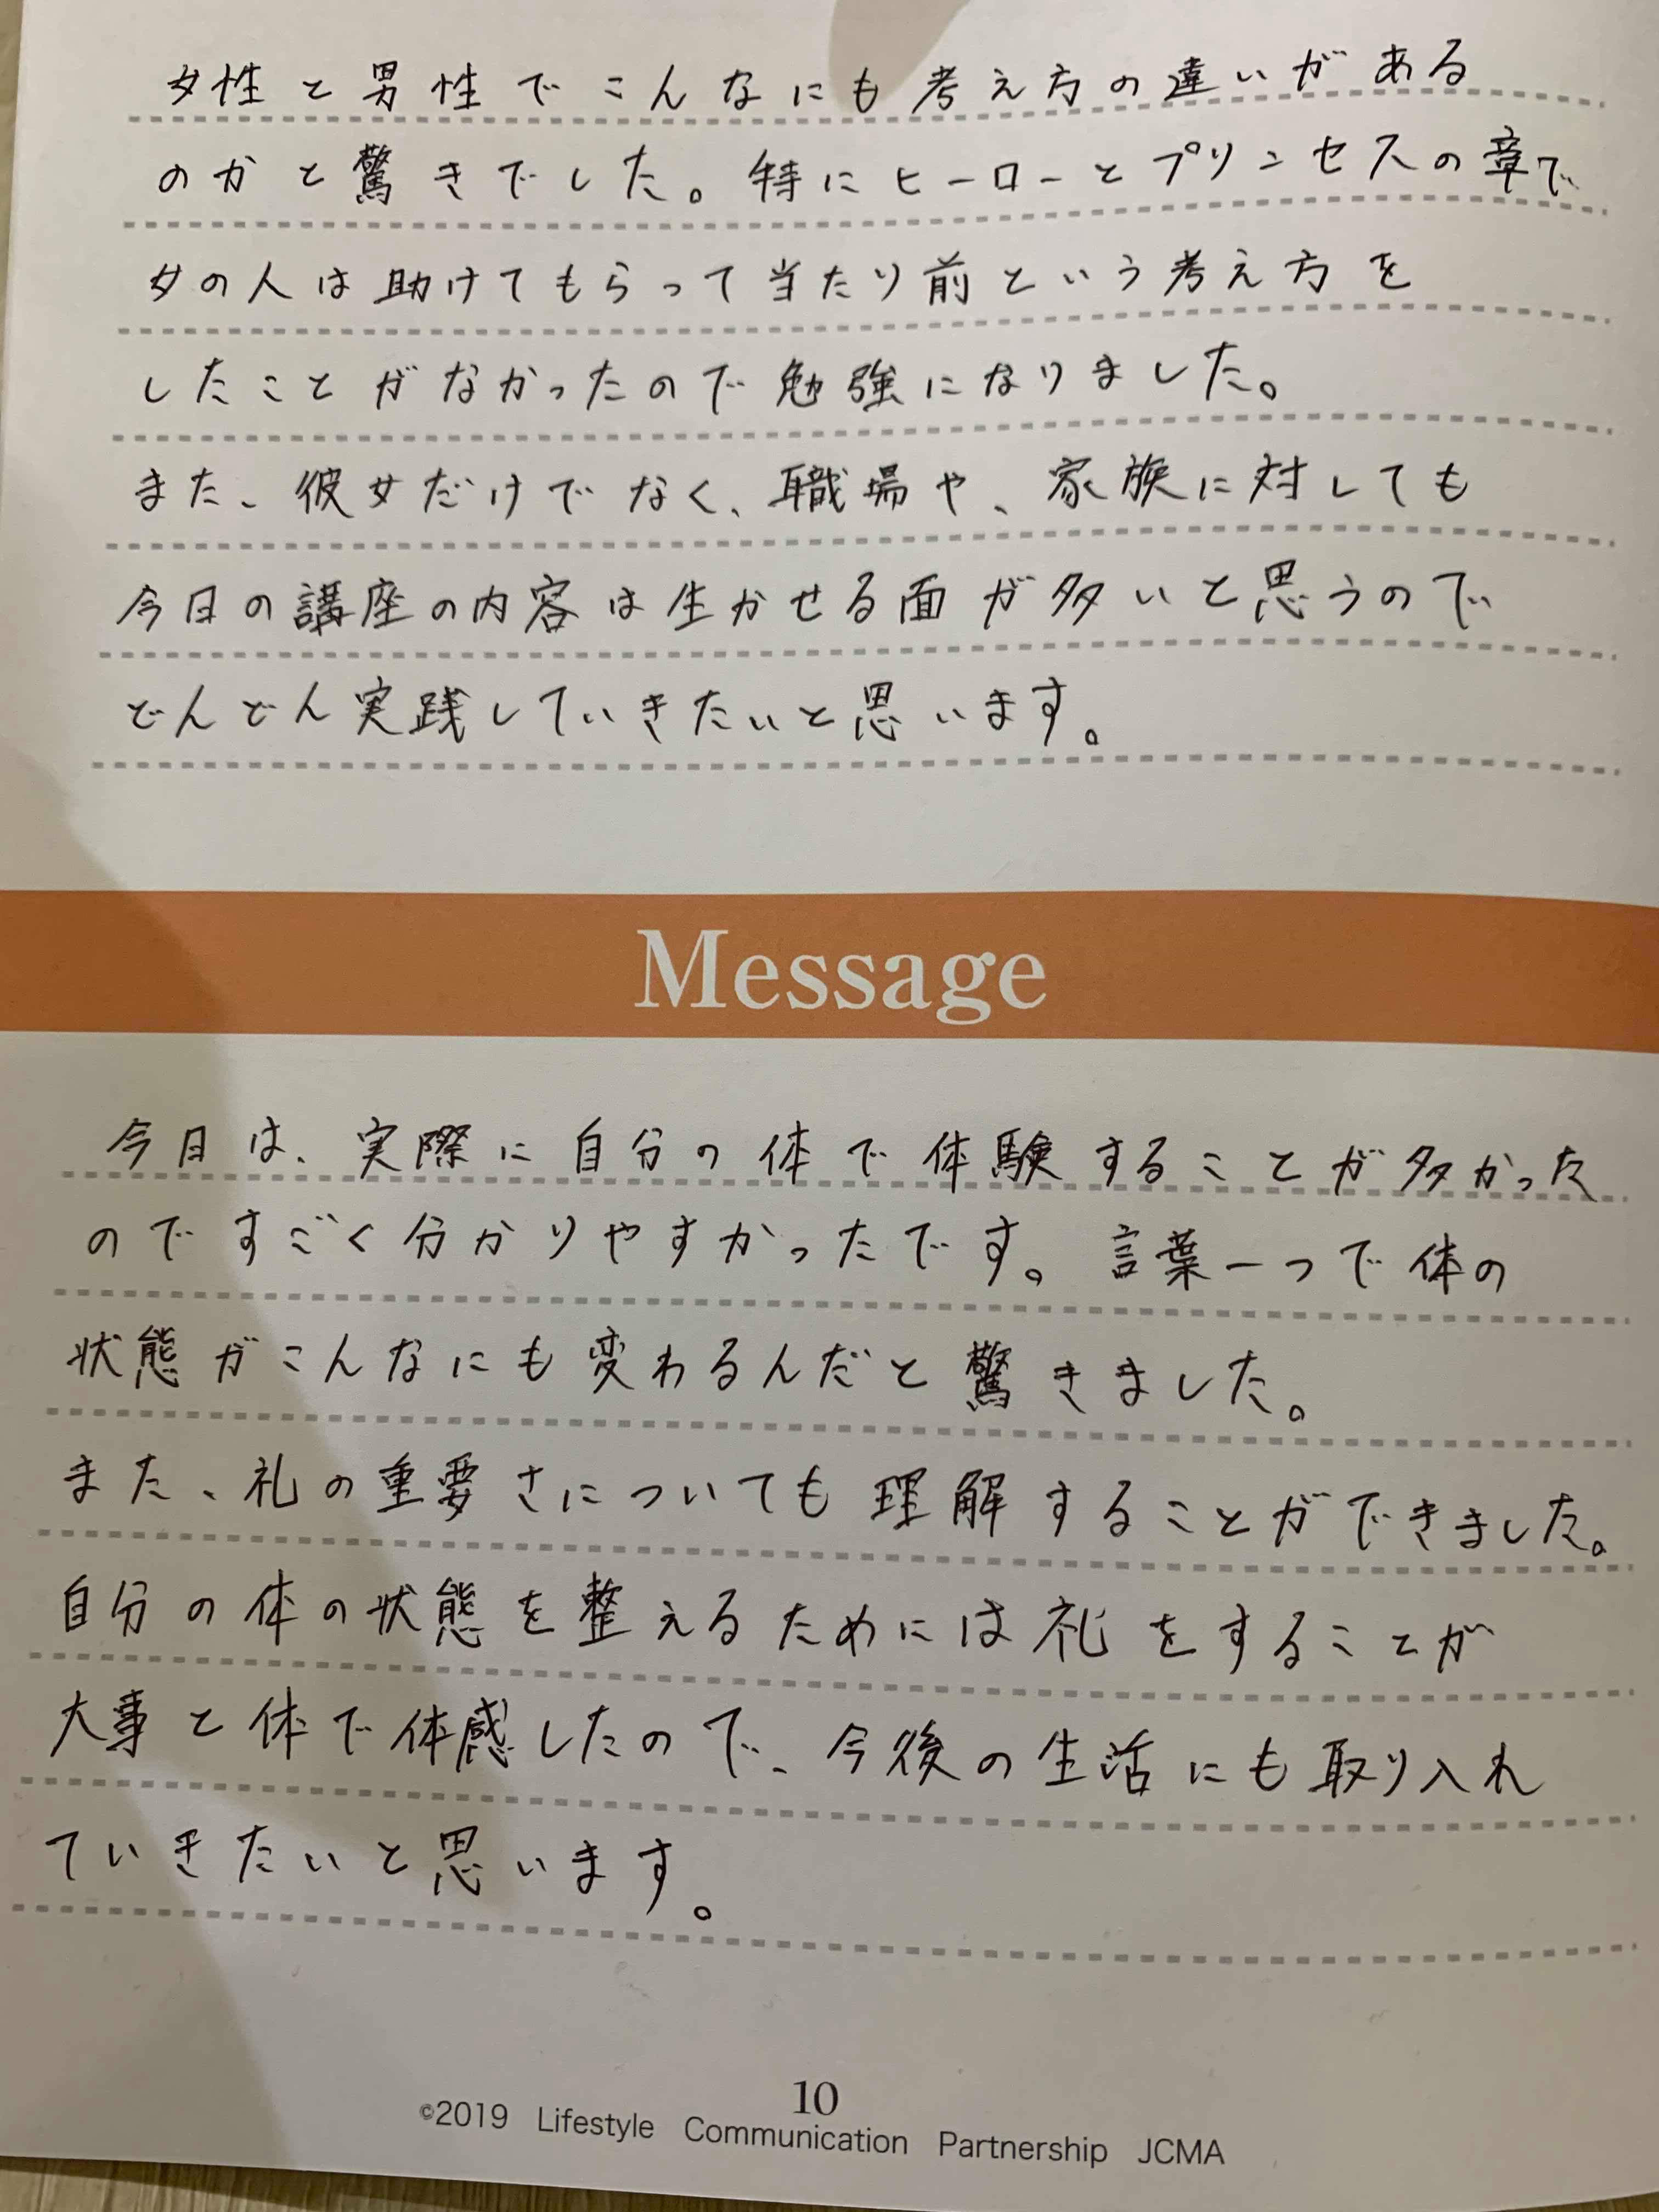 女性と男性でこんなにも考え方の違いがある
のかと驚きでした。特にヒーローとプリンセスの章で
女の人は助けてもらって当たり前という考え方を
したことがなかったので勉強になりました。
また、彼女だけでなく、職場や、家族に対しても
今日の講座の内容は生かせる面が多いと思うので
どんどん実践していきたいと思います。
Message
今日は、実際に自分の体で体験することが多かった
のですごく分かりやすかったです。言葉一つで体の
状態がこんなにも変わるんだと驚きました。
また、礼の重要さについても理解することができました。
自分の体の状態を整えるためには礼をすることが
大事と体で体感したので、今後の生活にも取り入れ
ていきたいと思います。
10
©2019 Lifestyle Communication Partnership JCMA